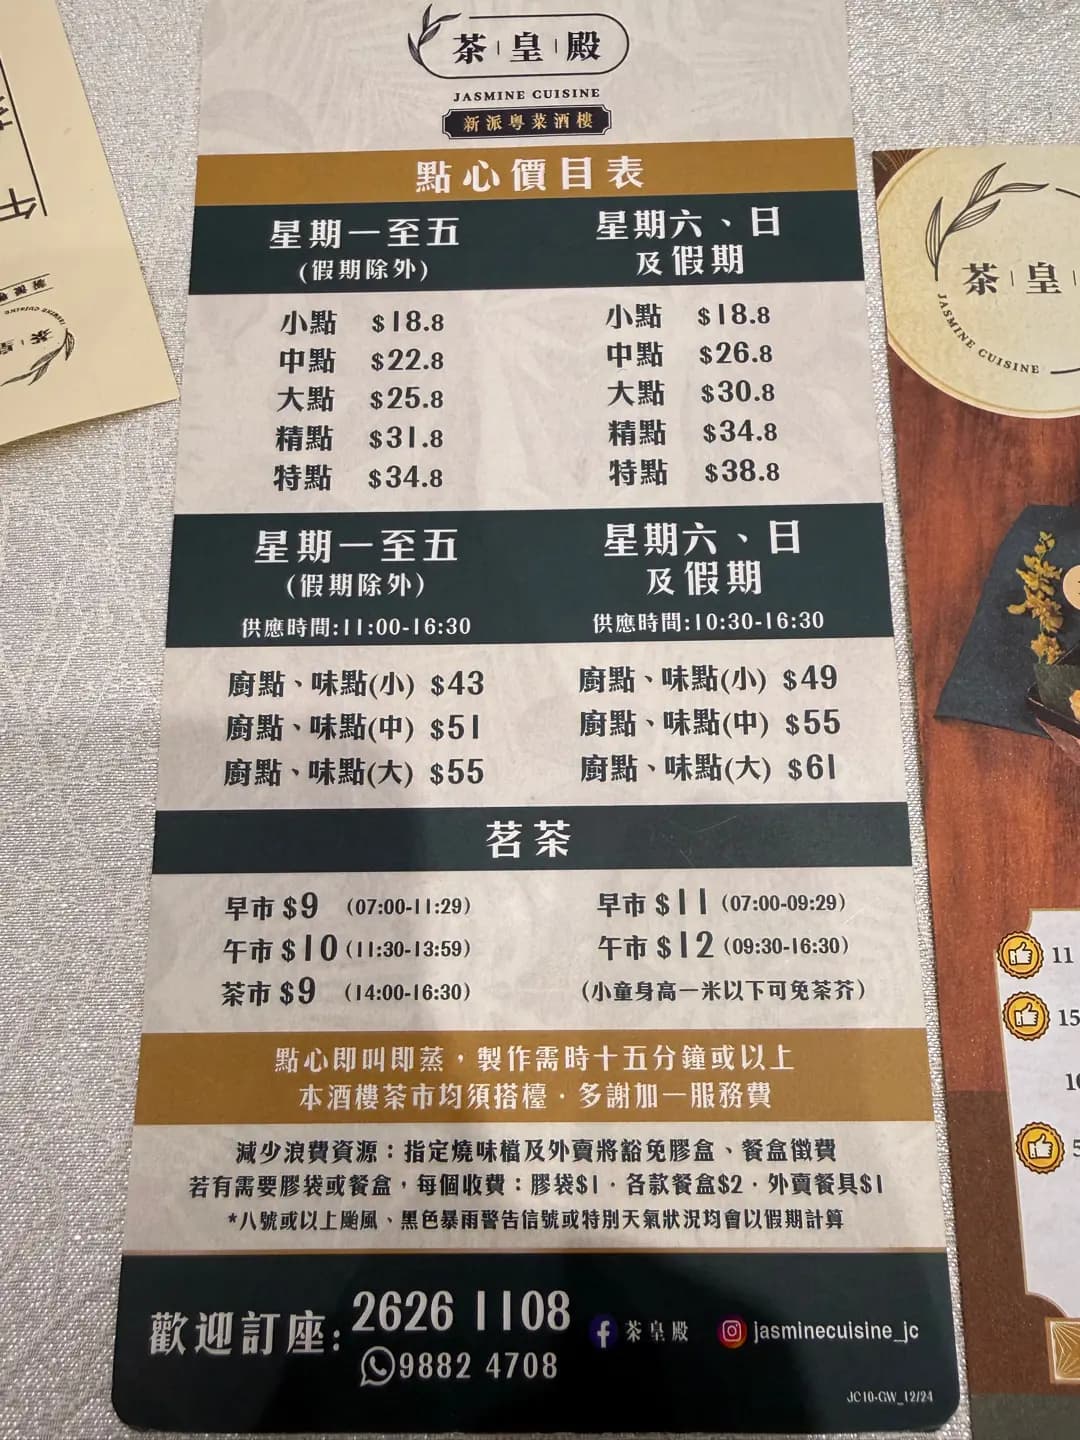 茶皇殿
JASMINE CUISINE
新派粵菜酒樓
點心價目表
星期一至五
(假期除外)
小點 $18.8
中點 $22.8
大點 $25.8
精點 $31.8
特點 $34.8
星期六、日
及假期
小點 $18.8
中點 $26.8
大點 $30.8
精點 $34.8
特點 $38.8
星期一至五
(假期除外)
供應時間:11:00-16:30
廚點、味點(小) $43
廚點、味點(中) $51
廚點、味點(大) $55
星期六、日
及假期
供應時間:10:30-16:30
廚點、味點(小) $49
廚點、味點(中) $55
廚點、味點(大) $61
茗茶
早市 $9 (07:00-11:29)
午市 $10 (11:30-13:59)
茶市 $9 (14:00-16:30)
早市 $11 (07:00-09:29)
午市 $12 (09:30-16:30)
(小童身高一米以下可免茶芥)
點心即叫即蒸，製作需時十五分鐘或以上
本酒樓茶市均須搭檯·多謝加一服務費
減少浪費資源：指定燒味檔及外賣將豁免膠盒、餐盒徵費
若有需要膠袋或餐盒，每個收費：膠袋$1·各款餐盒$2·外賣餐具$1
*八號或以上颱風、黑色暴雨警告信號或特別天氣狀況均會以假期計算
歡迎訂座: 2626 1108
9882 4708
茶皇殿
jasminecuisine_jc
JC10-GW_12/24
茶皇
JASMINE CUISINE
11
15
10
5
午
JASMINE CUISINE
茶皇